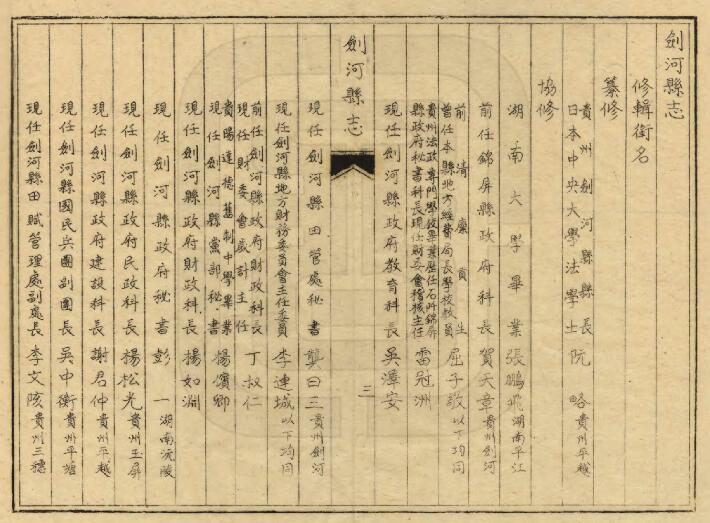 劍河縣志
修輯銜名
纂修
貴州劍河縣縣長
日本中央大學法學士阮略貴州平越
協修
湖南大學畢業張鵬飛湖南平江
前任錦屏縣政府科長賀天章貴州劍河
前清廩貢生
曾任本縣地方經費局長學校教員屈子敬以下均同
貴州法政專門學校畢業歷任石阡錦屏
縣政府秘書科長現任財委會稽核主任雷冠洲
現任劍河縣政府教育科長吳澤安
劍河縣志
三
現任劍河縣田管處秘書龔曰三貴州劍河
現任劍河縣地方財務委員會主任委員李連城以下均同
前任劍河縣政府財政科長
現任財委會歲計主任丁叔仁
貴陽達德舊制中學畢業
現任劍河縣黨部秘書楊濱卿
現任劍河縣政府財政科長楊如淵
現任劍河縣政府秘書彭一湖南沅陵
現任劍河縣政府民政科長楊松光貴州玉屏
現任劍河縣政府建設科長謝君仲貴州平越
現任劍河縣國民兵團副團長吳中衡貴州平塘
現任劍河縣田賦管理處副處長李文陔貴州三穗